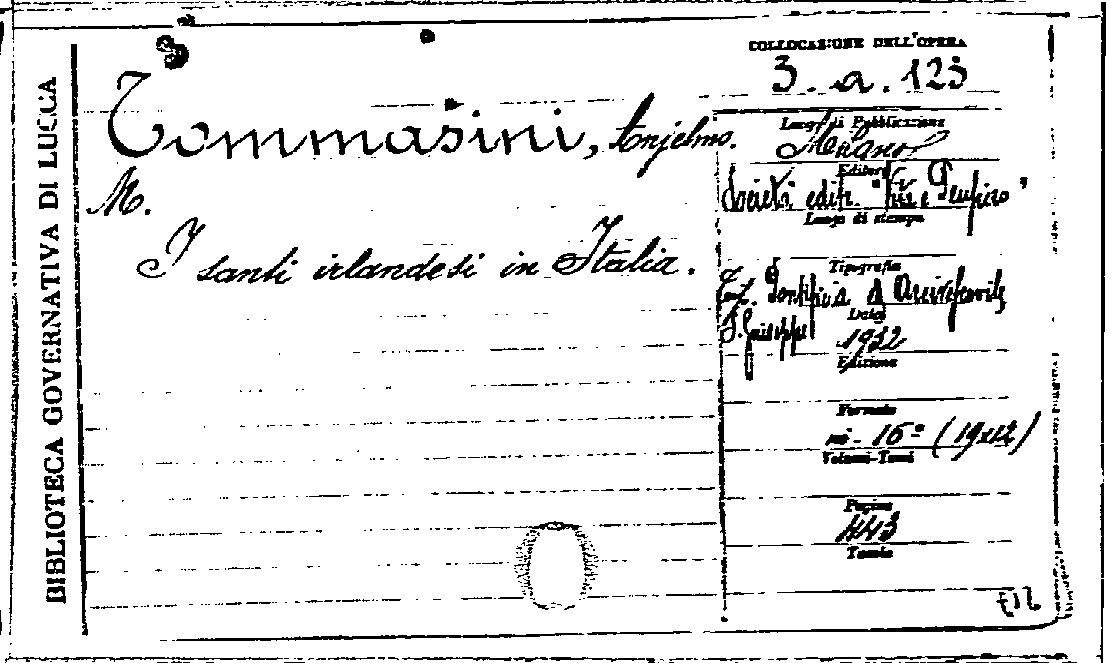 BIBLIOTECA GOVERNATIVA DI LUCCA
COLLOCAZIONE DELL'OPERA
3. a. 123
Tommasini, Anselmo.
M.
I santi irlandesi in Italia.
Luogo di Pubblicazione
Milano
Editore
Società editr. "Vita e Pensiero"
Luogo di stampa
Tipografia
Tip. Pontificia d Arcivescovile
S. Giuseppe
Data
1932
Edizione
Formato
in-16° (19x12)
Volumi-Tomi
Pagine
443
Tavole